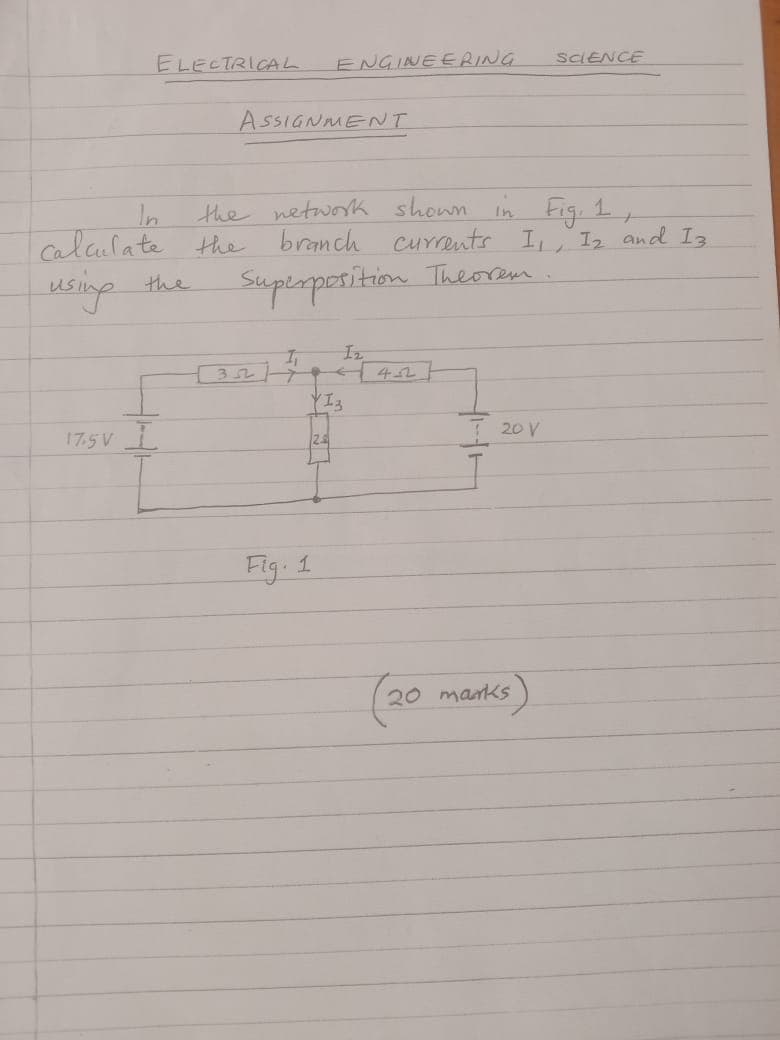 ELECTRICAL ENGINEERING SCIENCE
ASSIGNMENT
In the network shown in Fig. 1,
calculate the branch currents I₁, I₂ and I₃
using the Superposition Theorem.
I₁ I₂
3Ω 4Ω
I₃
17.5V 2Ω 20V
Fig. 1
(20 marks)